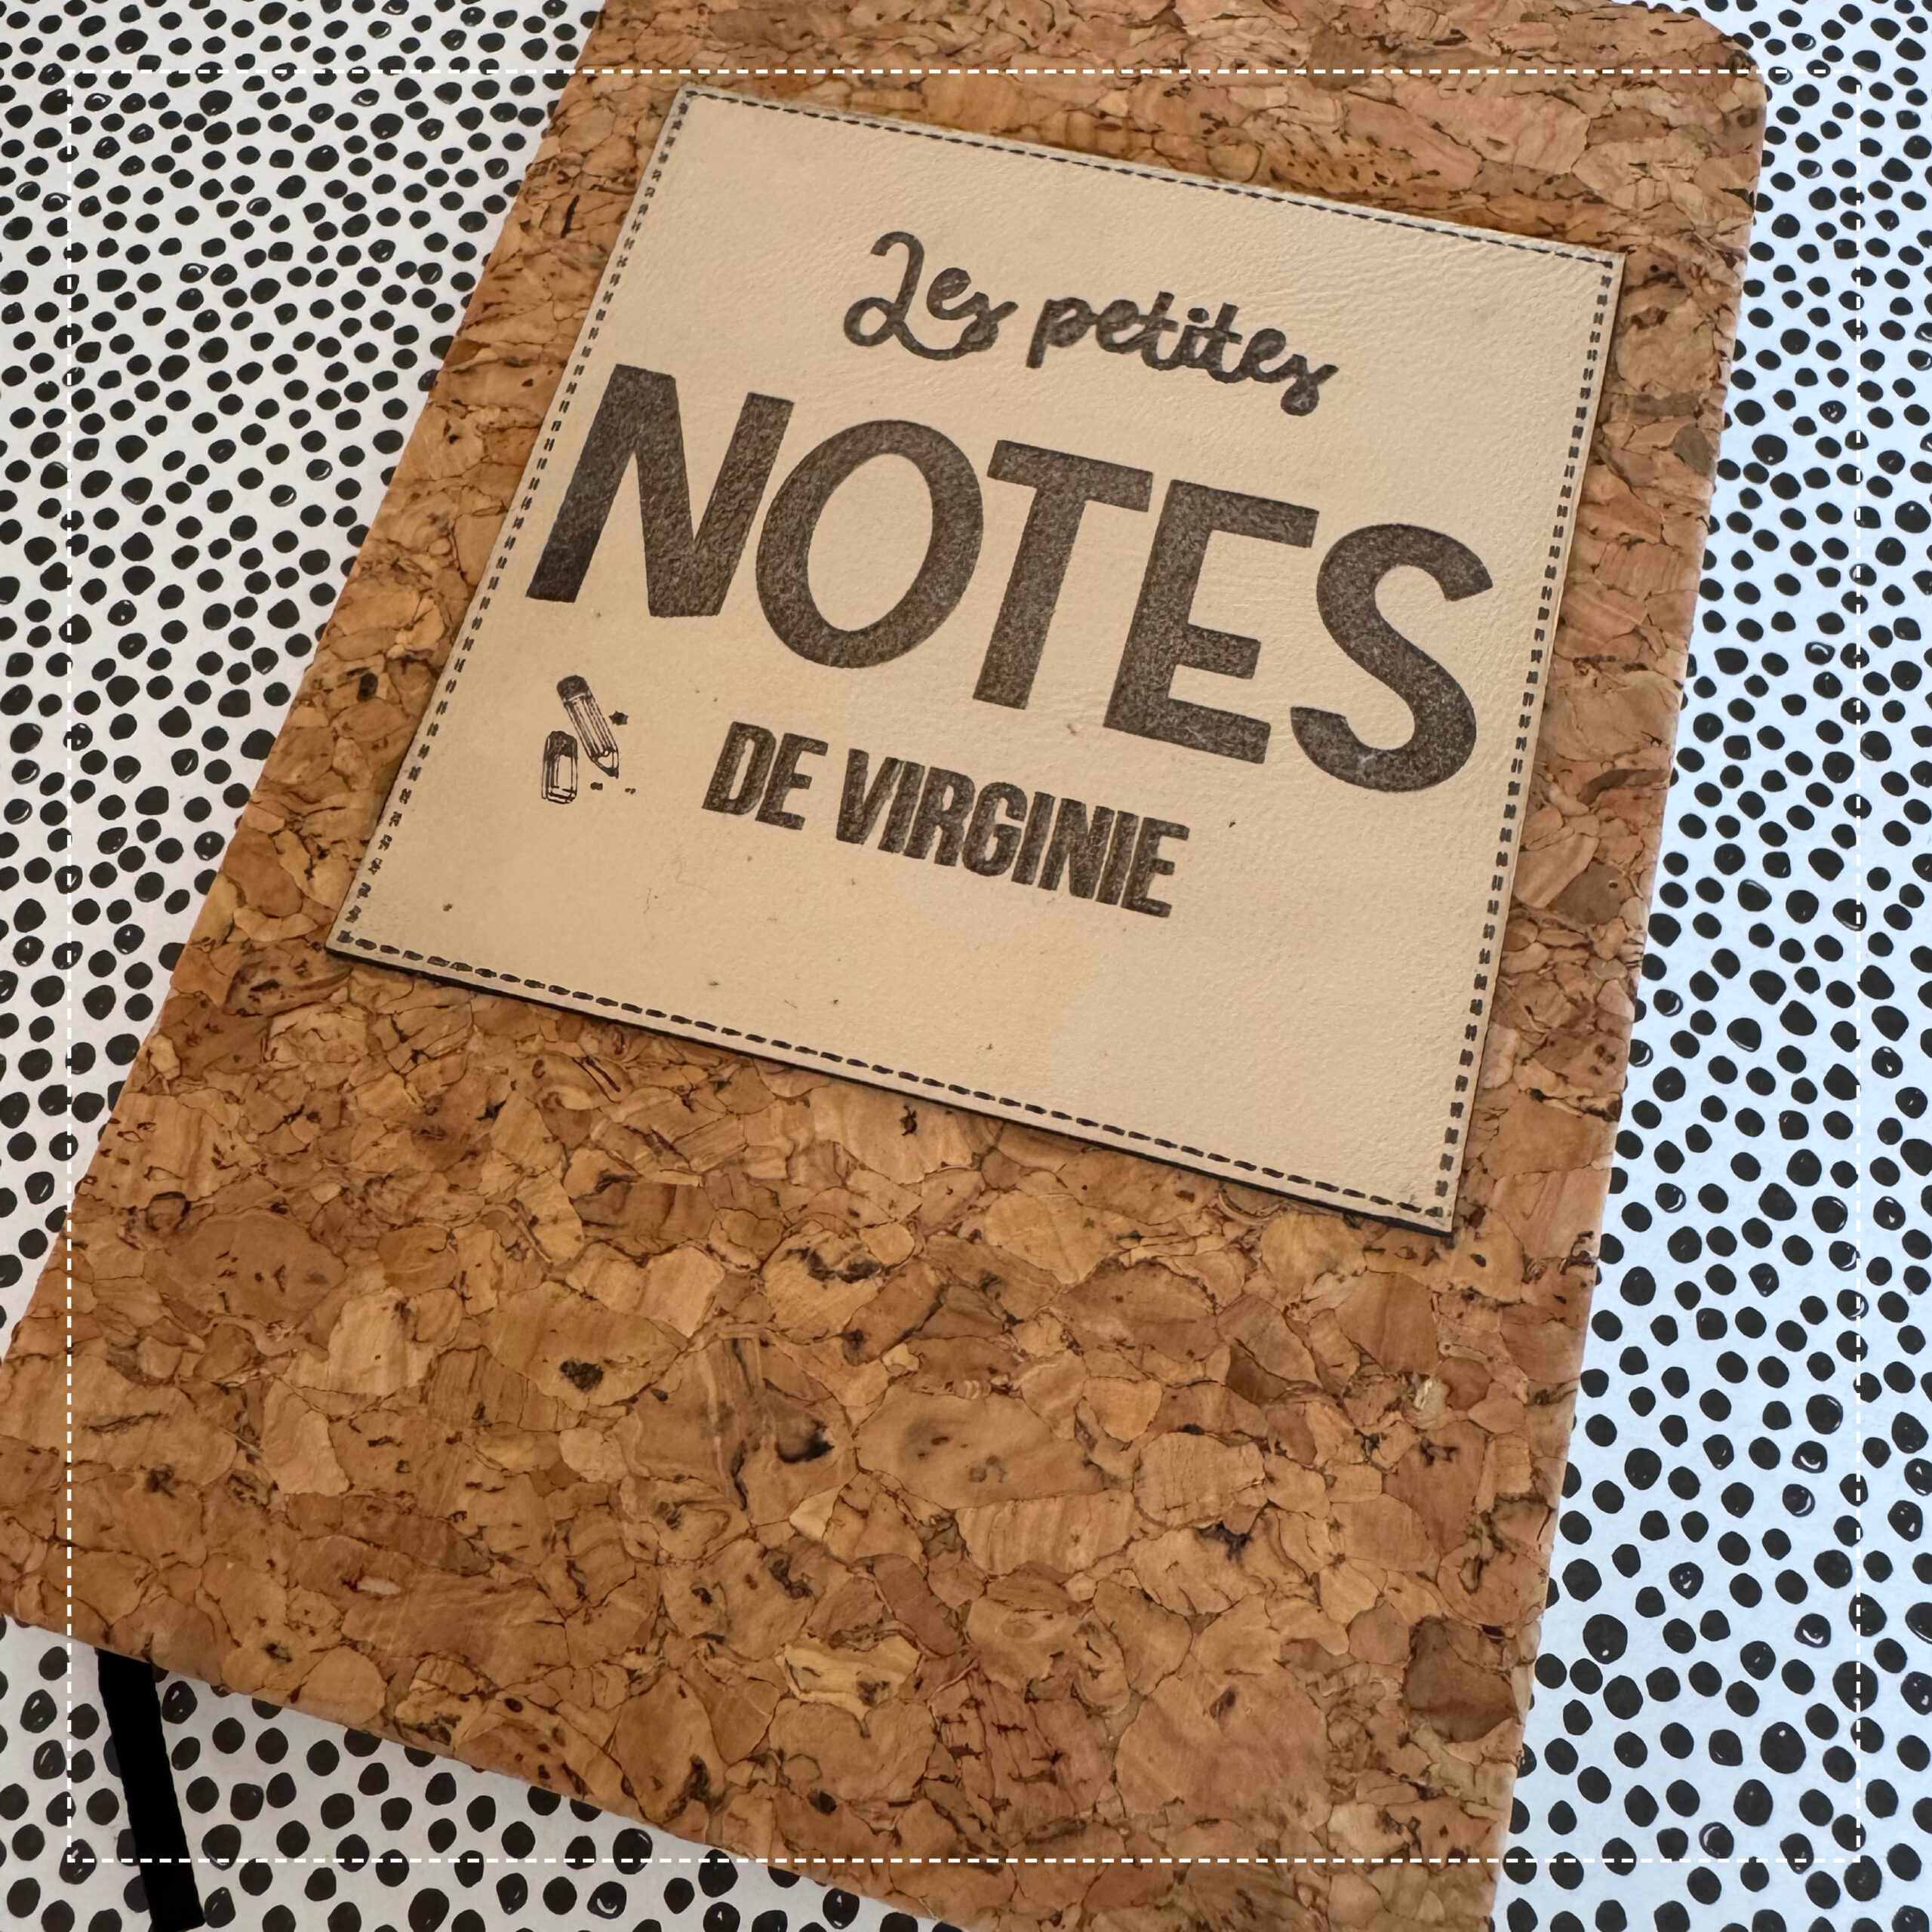 Les petites
NOTES
DE VIRGINIE